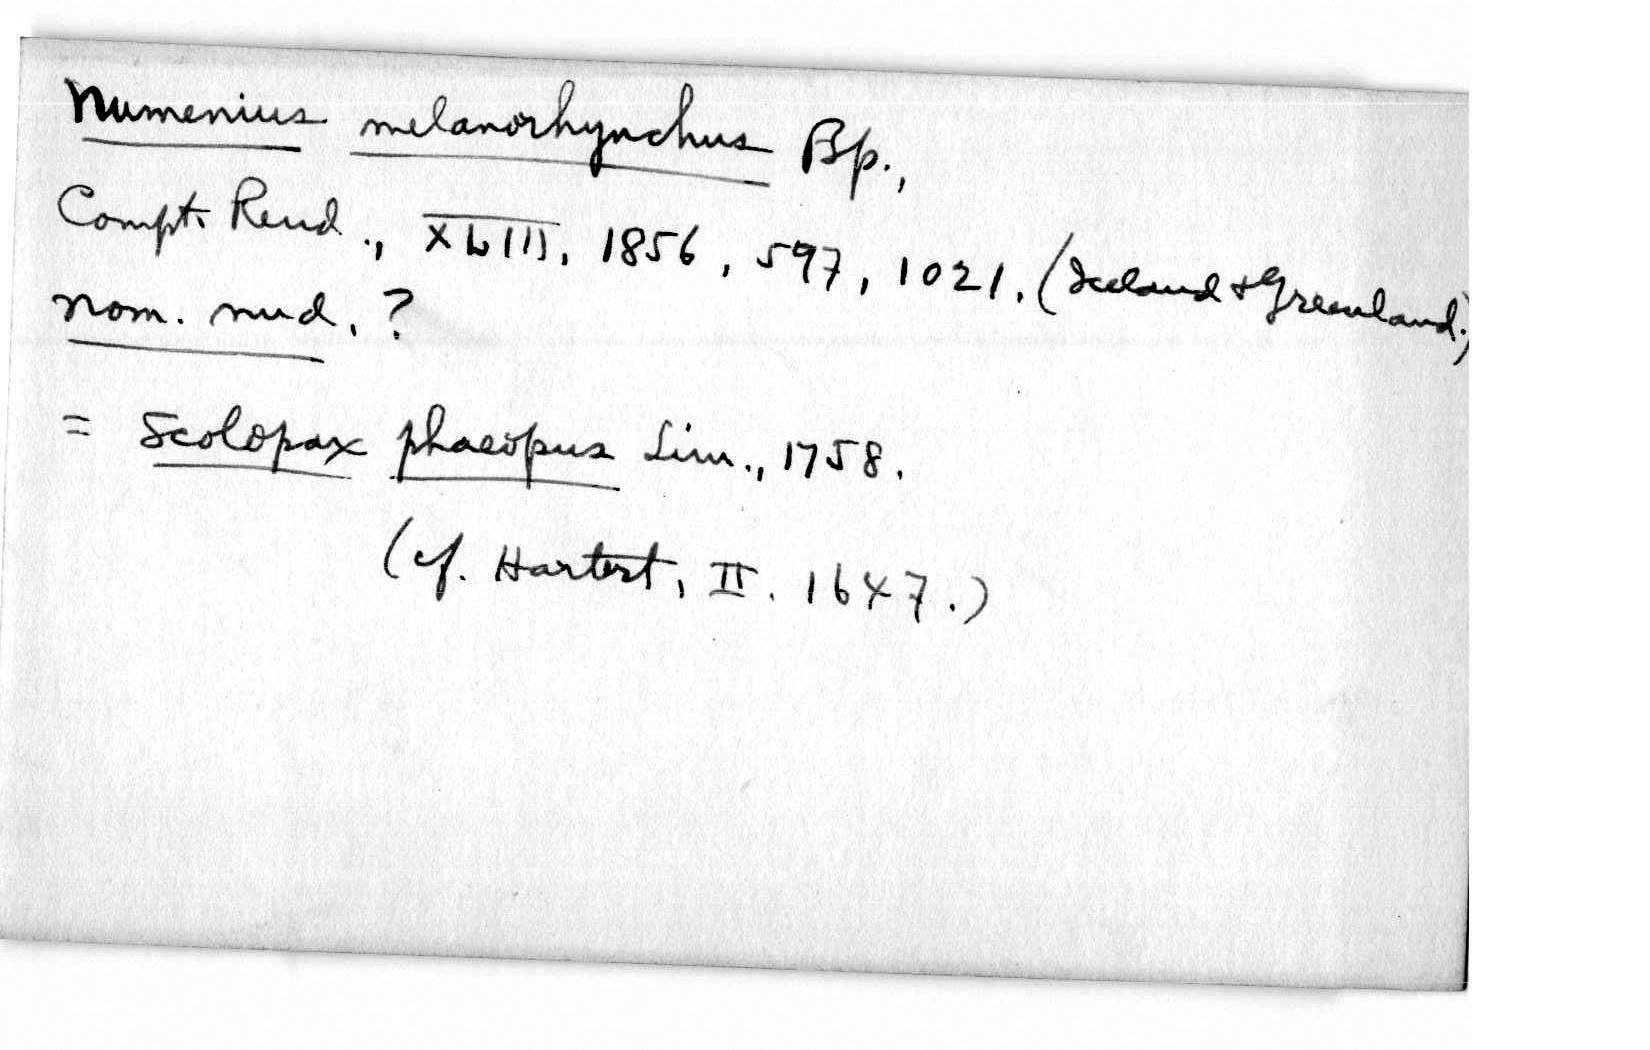 Numenius melanorhynchus Bp.,
Compt. Rend., XLIII, 1856, 597, 1021. (Iceland & Greenland.)
nom. nud. ?
= Scolopax phaeopus Linn., 1758.
(cf. Hartert, II. 1647.)